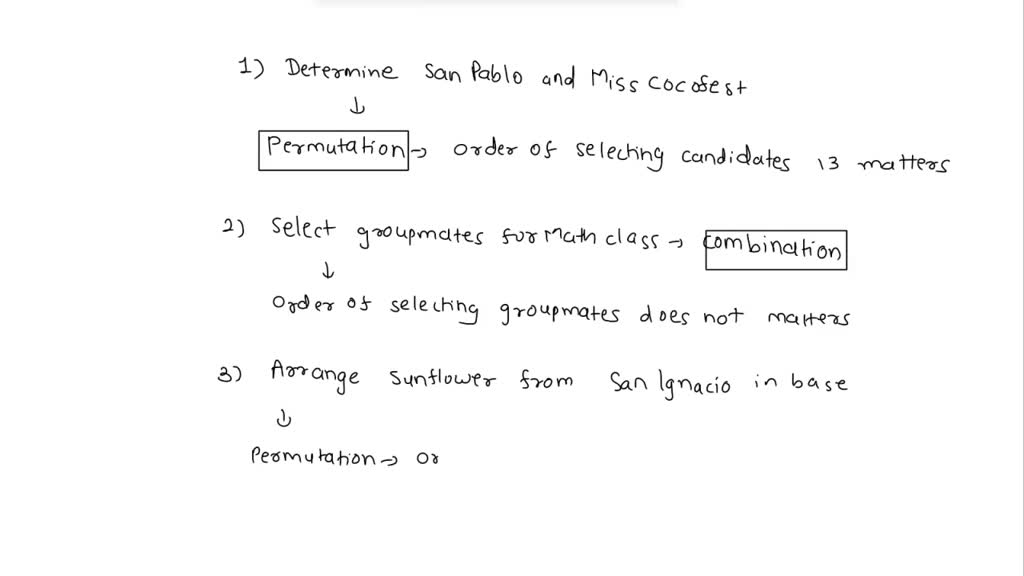 1) Determine San Pablo and Miss Cocofest
↓
Permutation → order of selecting candidates 13 matters
2) Select groupmates for Math class → combination
↓
Order of selecting groupmates does not matters
3) Arrange Sunflower from San Ignacio in base
↓
Permutation → Or